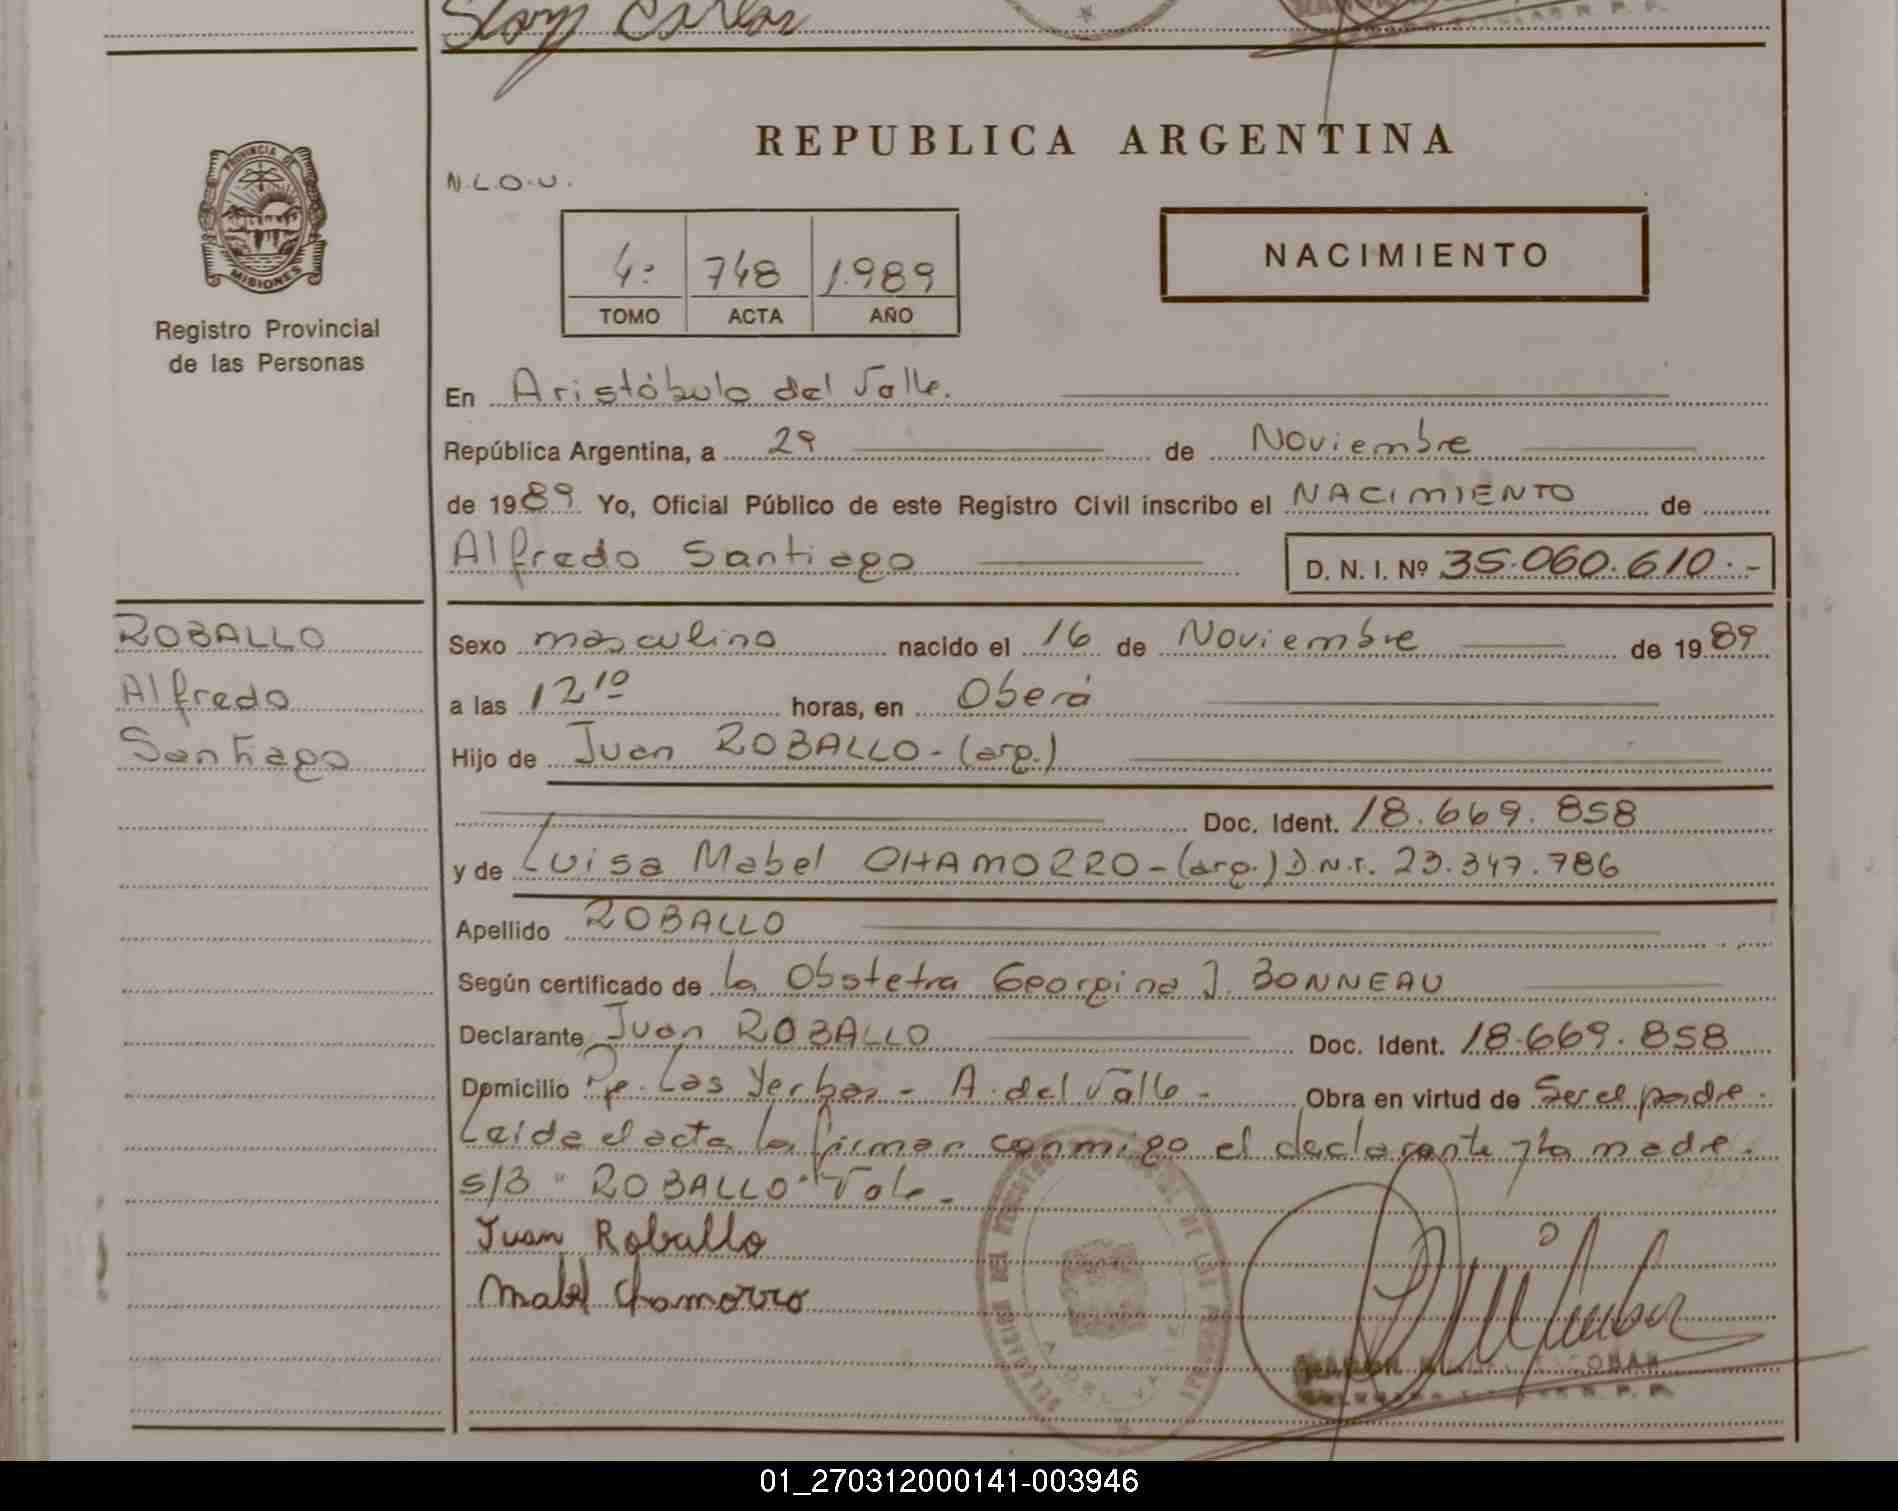 REPUBLICA ARGENTINA
PROVINCIA DE
MISIONES
Registro Provincial
de las Personas
N.L.O.U.
4: 748 1.989
TOMO ACTA AÑO
NACIMIENTO
En Aristóbulo del Valle.
República Argentina, a 29 de Noviembre
de 1989 Yo, Oficial Público de este Registro Civil inscribo el NACIMIENTO de
Alfredo Santiago D. N. I. Nº 35.060.610.-
ROBALLO
Alfredo
Santiago
Sexo masculino nacido el 16 de Noviembre de 1989
a las 12 10 horas, en Oberá
Hijo de Juan ROBALLO - (arg.)
Doc. Ident. 18.669.858
y de Luisa Mabel CHAMORRO - (arg.) D.N.I. 23.347.786
Apellido ROBALLO
Según certificado de la Obstetra Georgina J. BONNEAU
Declarante Juan ROBALLO Doc. Ident. 18.669.858
Domicilio Pje. Las Yerbas - A. del Valle - Obra en virtud de Ser el padre.
Leída el acta la firman conmigo el declarante y la madre.
s/B "ROBALLO" Vale.
Juan Roballo
Mabel Chamorro
ESCOBAR
01_270312000141-003946